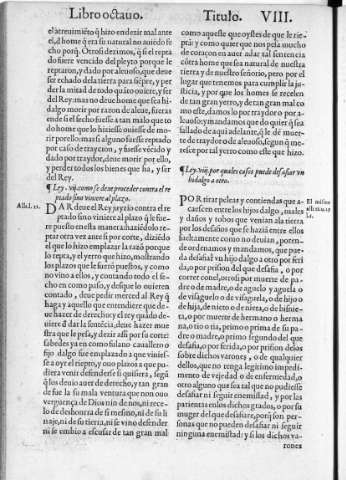 Libro octauo. Titulo. VIII.
el atreuimiẽto q̃ hizo en dezir mal ante
el, ò home q̃ era su natural no auiẽdo fe
cho porq̃. Otrosi dezimos, q̃ si el repta
do fuere vencido del pleyto porque le
reptaron, y dado por aleuoso, que deue
ser echado dela tierra para siẽpre, y per
der la mitad de todo quãto ouiere, y ser
del Rey: mas no deue home que sea hi
dalgo morir por razon de aleue, fueras
ende si el fecho fuesse a tan malo que to
do home que lo hiziesse ouiesse de mo
rir por ello: mas si alguno fuesse reptado
por caso de traycion, y fuesse vécido y
dado por traydor, deue morir por ello,
y perder todos los bienes que ha, y ser
del Rey.
¶ Ley. vij. como se deue proceder contra el re
ptado sino viniere al plazo.
DAR deue el Rey juyzio contra el re
ptado sino viniere al plazo q̃ le fue
re puesto en esta manera: haziẽdolo re
ptar otra vez ante si por corte, diziẽdo
el que lo hizo emplazar la razõ porque
lo repta, y el yerro que hizo, mostrando
los plazos que le fueron puestos, y como
no vino a ellos, y contando todo el fe-
cho en como passo, y desque lo ouieren
contado, deue pedir merced al Rey q̃
haga y aquello que entendiere que de-
ue hazer de derecho: y el rey quãdo de-
uiere dar la sentẽcia, deue hazer mue
stra que le pesa, y dezir assi por su corte:
sabedes ya en como fulano cauallero o
fijo dalgo fue emplazado a que vinies-
se a oyr el riepto, y vuo plazos a que pu-
diera venir defenderse si quisiera, segũ
q̃ los deuio auer de derecho, y tan gran
de fue la su mala ventura que non ouo
verguença de Dios ni de nos, ni rece-
lo de deshonrra de si mesmo, ni de su li
naje, ni de su tierra, ni se vino defender
ni se embio a escusar de tan gran mal
como aqueste que oystes de que le rie-
ptã: y como quier que nos pesa mucho
de coraçon en auer adar tal sentencia
cõtra home que sea natural de nuestra
tierra y de nuestro señorio, pero por el
lugar que tenemos para cumplir la ju-
sticia, y por que los homes se recelen
de tan gran yerro, y de tan gran mal co
mo este, damos lo por traydor o por a-
leuoso: y mandamos que do quier q̃ sea
fallado de aqui adelante, q̃ le dẽ muer-
te de traydor o de aleuoso, segun q̃ me-
resce por tal yerro como este que hizo.
¶ Ley. viij. por quales casos puede desafiar vn
hidalgo a otro.
POR tirar peleas y contiendas que a-
caescen entre los hijos dalgo, males
y daños y robos que venian ala tierra
por los desafios que se hazia entre ellos
sueltamente como no deuian, poren-
de ordenamos y mandamos, que pue-
da desafiar vn hijo dalgo a otro por feri
da, o por prision del que desafia, o por
correr con el, otrosi por muerte de pa-
dre o de madre, o de aguelo y aguela o
de visaguelo o de visaguela, o de hijo o
de hija, o de nieto o de nieta, o de bisnie-
to, o por muerte de hermano o herma
na, o tio o tia, primo o prima de su pa-
dre o madre, o primo segundo del que
desafia, o por ferida, o por prision delos
sobre dichos varones, o de qualquier
dellos, que no tenga legitimo impedi-
mento de vejedad o de enfermedad, o
otro alguno que sea tal que no pudiesse
desafiar ni seguir enemistad, y por las
parientas enlos dichos grados, o por su
muger del que desafiare, porq̃ son per-
sonas que no pueden desafiar ni seguir
ninguna enemistad: y si los dichos va-
rones